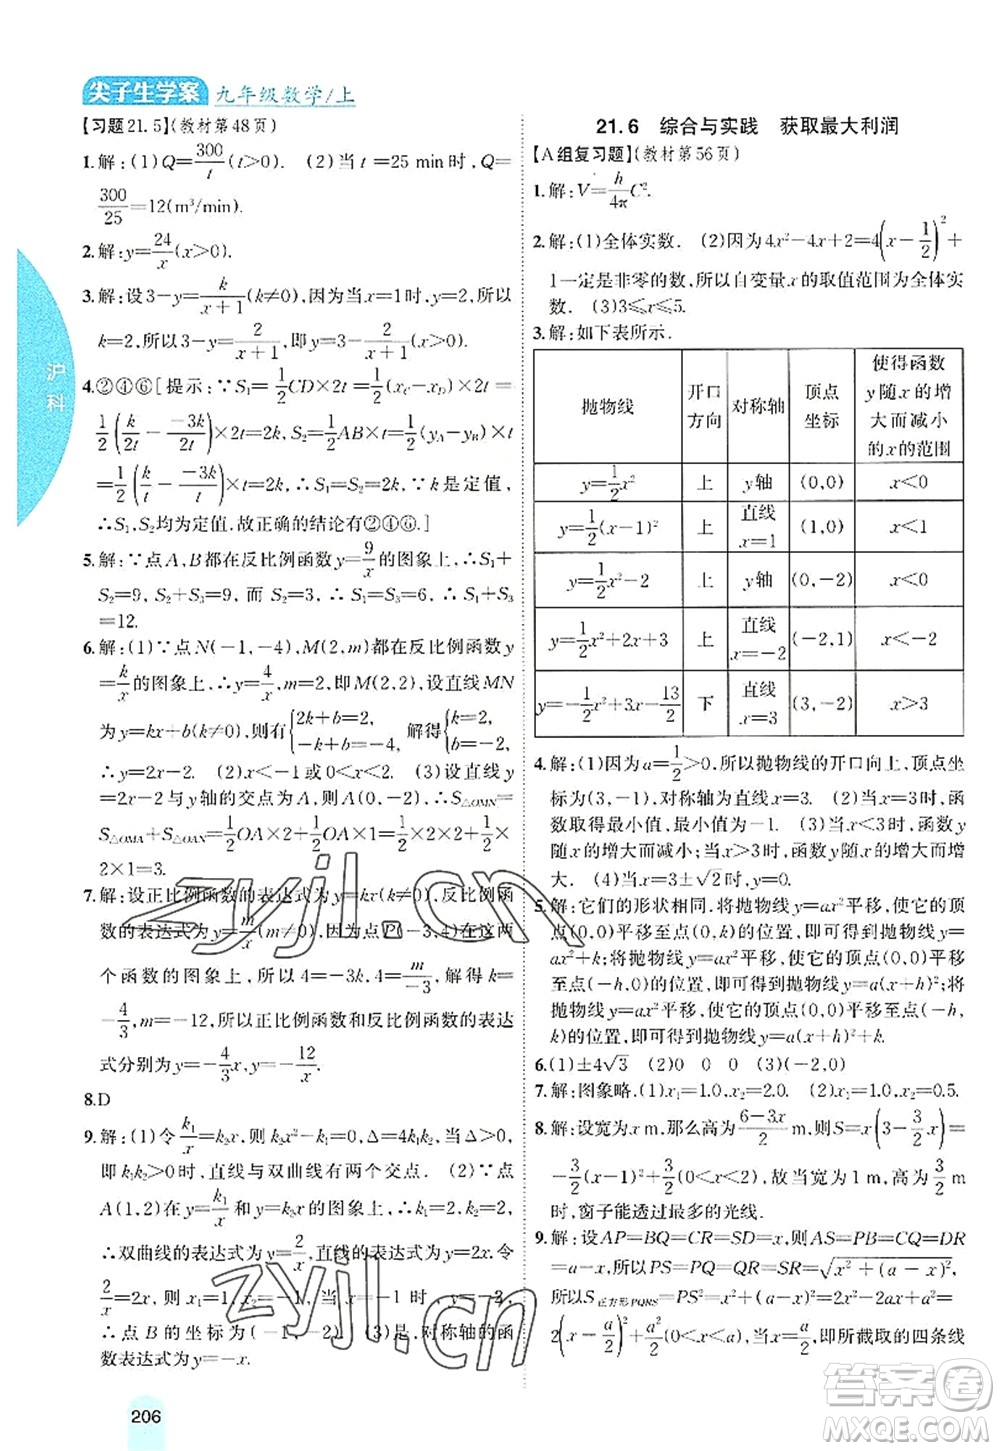 尖子生学案 九年级数学/上
【习题21.5】(教材第48页)
1.解:(1)Q=300/t(t>0). (2)当 t=25 min时,Q=
300/25=12(m³/min).
2.解:y=24/x(x>0).
3.解:设3-y=k/(x+1)(k≠0),因为当x=1时,y=2,所以
k=2,所以3-y=2/(x+1),即y=3-2/(x+1).
4.②④⑥[提示:∵S₁=1/2CD×2t=1/2(x_C-x_D)×2t=
1/2(k/t-(-3k)/t)×2t=2k,S₂=1/2AB×t=1/2(y_A-y_B)×t
=1/2(k/t-(-3k)/t)×t=2k,k是定值,∴S₁=S₂=2k是定值,
∴S₁,S₂均为定值.故正确的结论有②④⑥.]
5.解:∵点A,B都在反比例函数y=9/x的图象上,∴S₁+
S阴影=9,S₂+S阴影=9,而 S阴影=3,∴S₁+S₂
=12.
6.解:(1)∵点N(-1,-4),M(2,m)都在反比例函数y
=k/x的图象上,∴y=4/x,m=2,即M(2,2),设直线MN
为y=kx+b(k≠0),则有{2k+b=2,-k+b=-4,解得{k=2,b=-2,
∴y=2x-2. (2)x<-1或0<x<2. (3)设直线y
=2x-2与y轴的交点为A,则A(0,-2),∴S△OMN=
S△OMA+S△OAN=1/2OA×2+1/2OA×1=1/2×2×2+1/2
×2×1=3.
7.解:设正比例函数的表达式为y=kx(k≠0),反比例函
数的表达式为y=m/x(m≠0),因为点P(-3,4)在这两
个函数的图象上,所以4=-3k,4=m/-3,解得k=
-4/3,m=-12,所以正比例函数和反比例函数的表达
式分别为y=-4/3x,y=-12/x.
8.D
9.解:(1)令k₁/x=k₂x,则 k₂x²-k₁=0,Δ=4k₁k₂,∴
即k₁k₂>0时,直线与双曲线有两个交点. (2)∵点
A(1,2)在y=k₁/x和y=k₂x的图象上,∴k₁=2,k₂=2.
∴双曲线的表达式为y=2/x,直线的表达式为y=2x.令
2/x=2x,则x₁=1,x₂=-1.当x=-1时,y=-2,
∴点 B的坐标为(-1,-2). (3)是,对称轴的函
数表达式为y=-x.
21.6 综合与实践 获取最大利润
【A组复习题】(教材第56页)
1.解:V=h/4π C².
2.解:(1)全体实数. (2)因为4x²-4x+2=4(x-1/2)²+
1一定是非零的数,所以自变量x的取值范围为全体实
数. (3)3≤x≤5.
3.解:如下表所示.
抛物线 开口方向 对称轴 顶点坐标 使得函数y随x的增大而减小的x的范围
y=1/2x² 上 y轴 (0,0) x<0
y=1/2(x-1)² 上 直线x=1 (1,0) x<1
y=1/2x²-2 上 y轴 (0,-2) x<0
y=1/2x²+2x+3 上 直线x=-2 (-2,1) x<-2
y=-1/2x²+3x-13/2 下 直线x=3 (3,-2) x>3
4.解:(1)因为a=1/2>0,所以抛物线的开口向上,顶点坐
标为(3,-1),对称轴为直线x=3. (2)当x=3时,函
数取得最小值,最小值为-1. (3)当x<3时,函数y
随x的增大而减小;当x>3时,函数y随x的增大而增
大. (4)当x=3±√2时,y=0.
5.解:它们的形状相同.将抛物线y=ax²平移,使它的顶
点(0,0)在点(0,k)的位置,即可得到抛物线y=ax²
+k;将抛物线y=ax²平移,使它的顶点(0,0)在点
(-h,0)的位置,即可得到抛物线y=a(x+h)²;将抛
物线y=ax²平移,使它的顶点(0,0)在点(-h,
k)的位置,即可得到抛物线y=a(x+h)²+k.
6.(1)±4√3 (2)0 0 0 (3)(-2,0)
7.解:图象略.(1)x₁=1.0,x₂=2.0. (2)x₁=1.0,x₂=0.5.
8.解:设宽为x m,那么高为(6-3x)/2 m,则S=x(3-3/2x)=
-3/2(x-1)²+3/2(0<x<2),故当宽为1 m,高为3/2 m
时,窗子能透过最多的光线.
9.解:设AP=BQ=CR=SD=x,则AS=PB=CQ=RD
=a-x,所以PS=PQ=QR=SR=√(x²+(a-x)²),
所以S正方形PQRS=PS²=x²+(a-x)²=2x²-2ax+a²=
2(x-a/2)²+a²/2(0<x<a),当x=a/2时,即所截取的四条线
沪科
206
zyjl.cn
zyjl.cn
答案圈
MXQE.COM